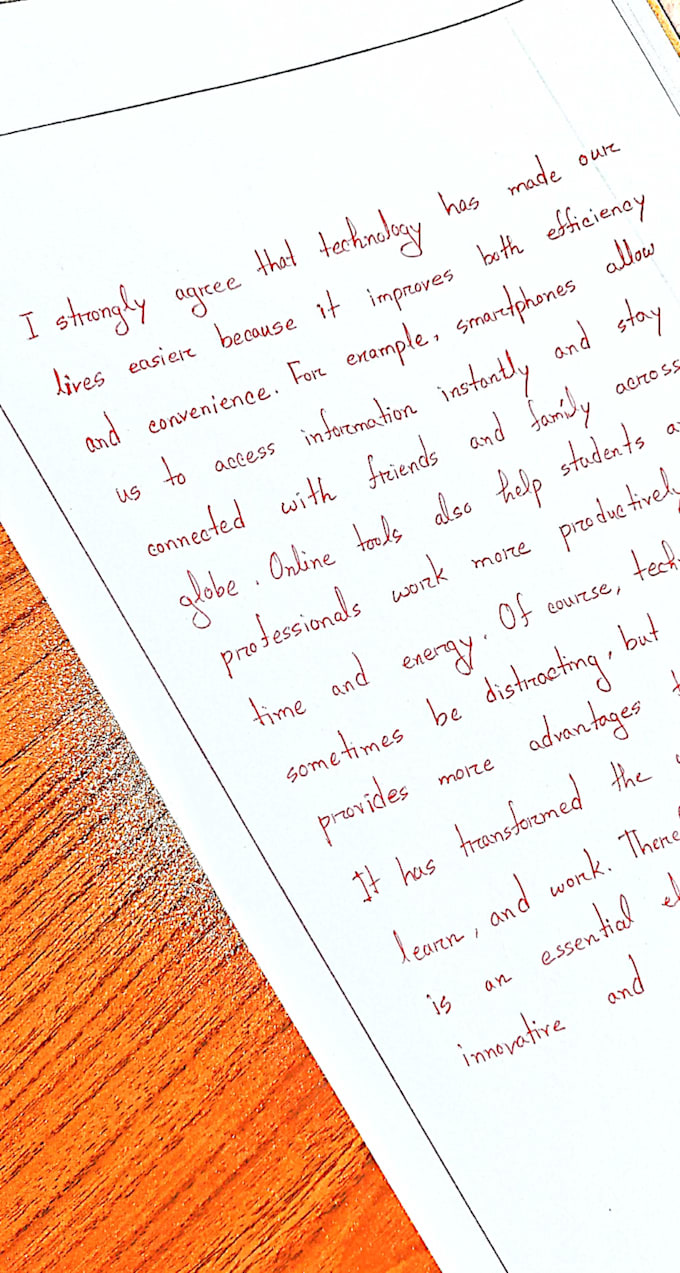 I strongly agree that technology has made our
lives easier because it improves both efficiency
and convenience. For example, smartphones allow
us to access information instantly and stay
connected with friends and family across
globe. Online tools also help students
professionals work more productively
time and energy. Of course,
sometimes be distracting, but
provides more advantages
It has transformed the
learn, and work.
is an essential
innovative and